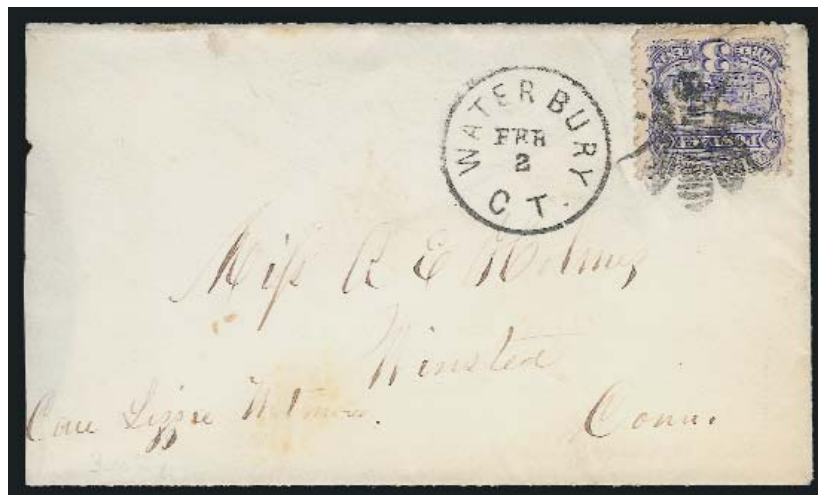 WATERBURY
FEB
2
CT.
3
Miss R E Holmes
Winsted
Care Lizzie
Conn.